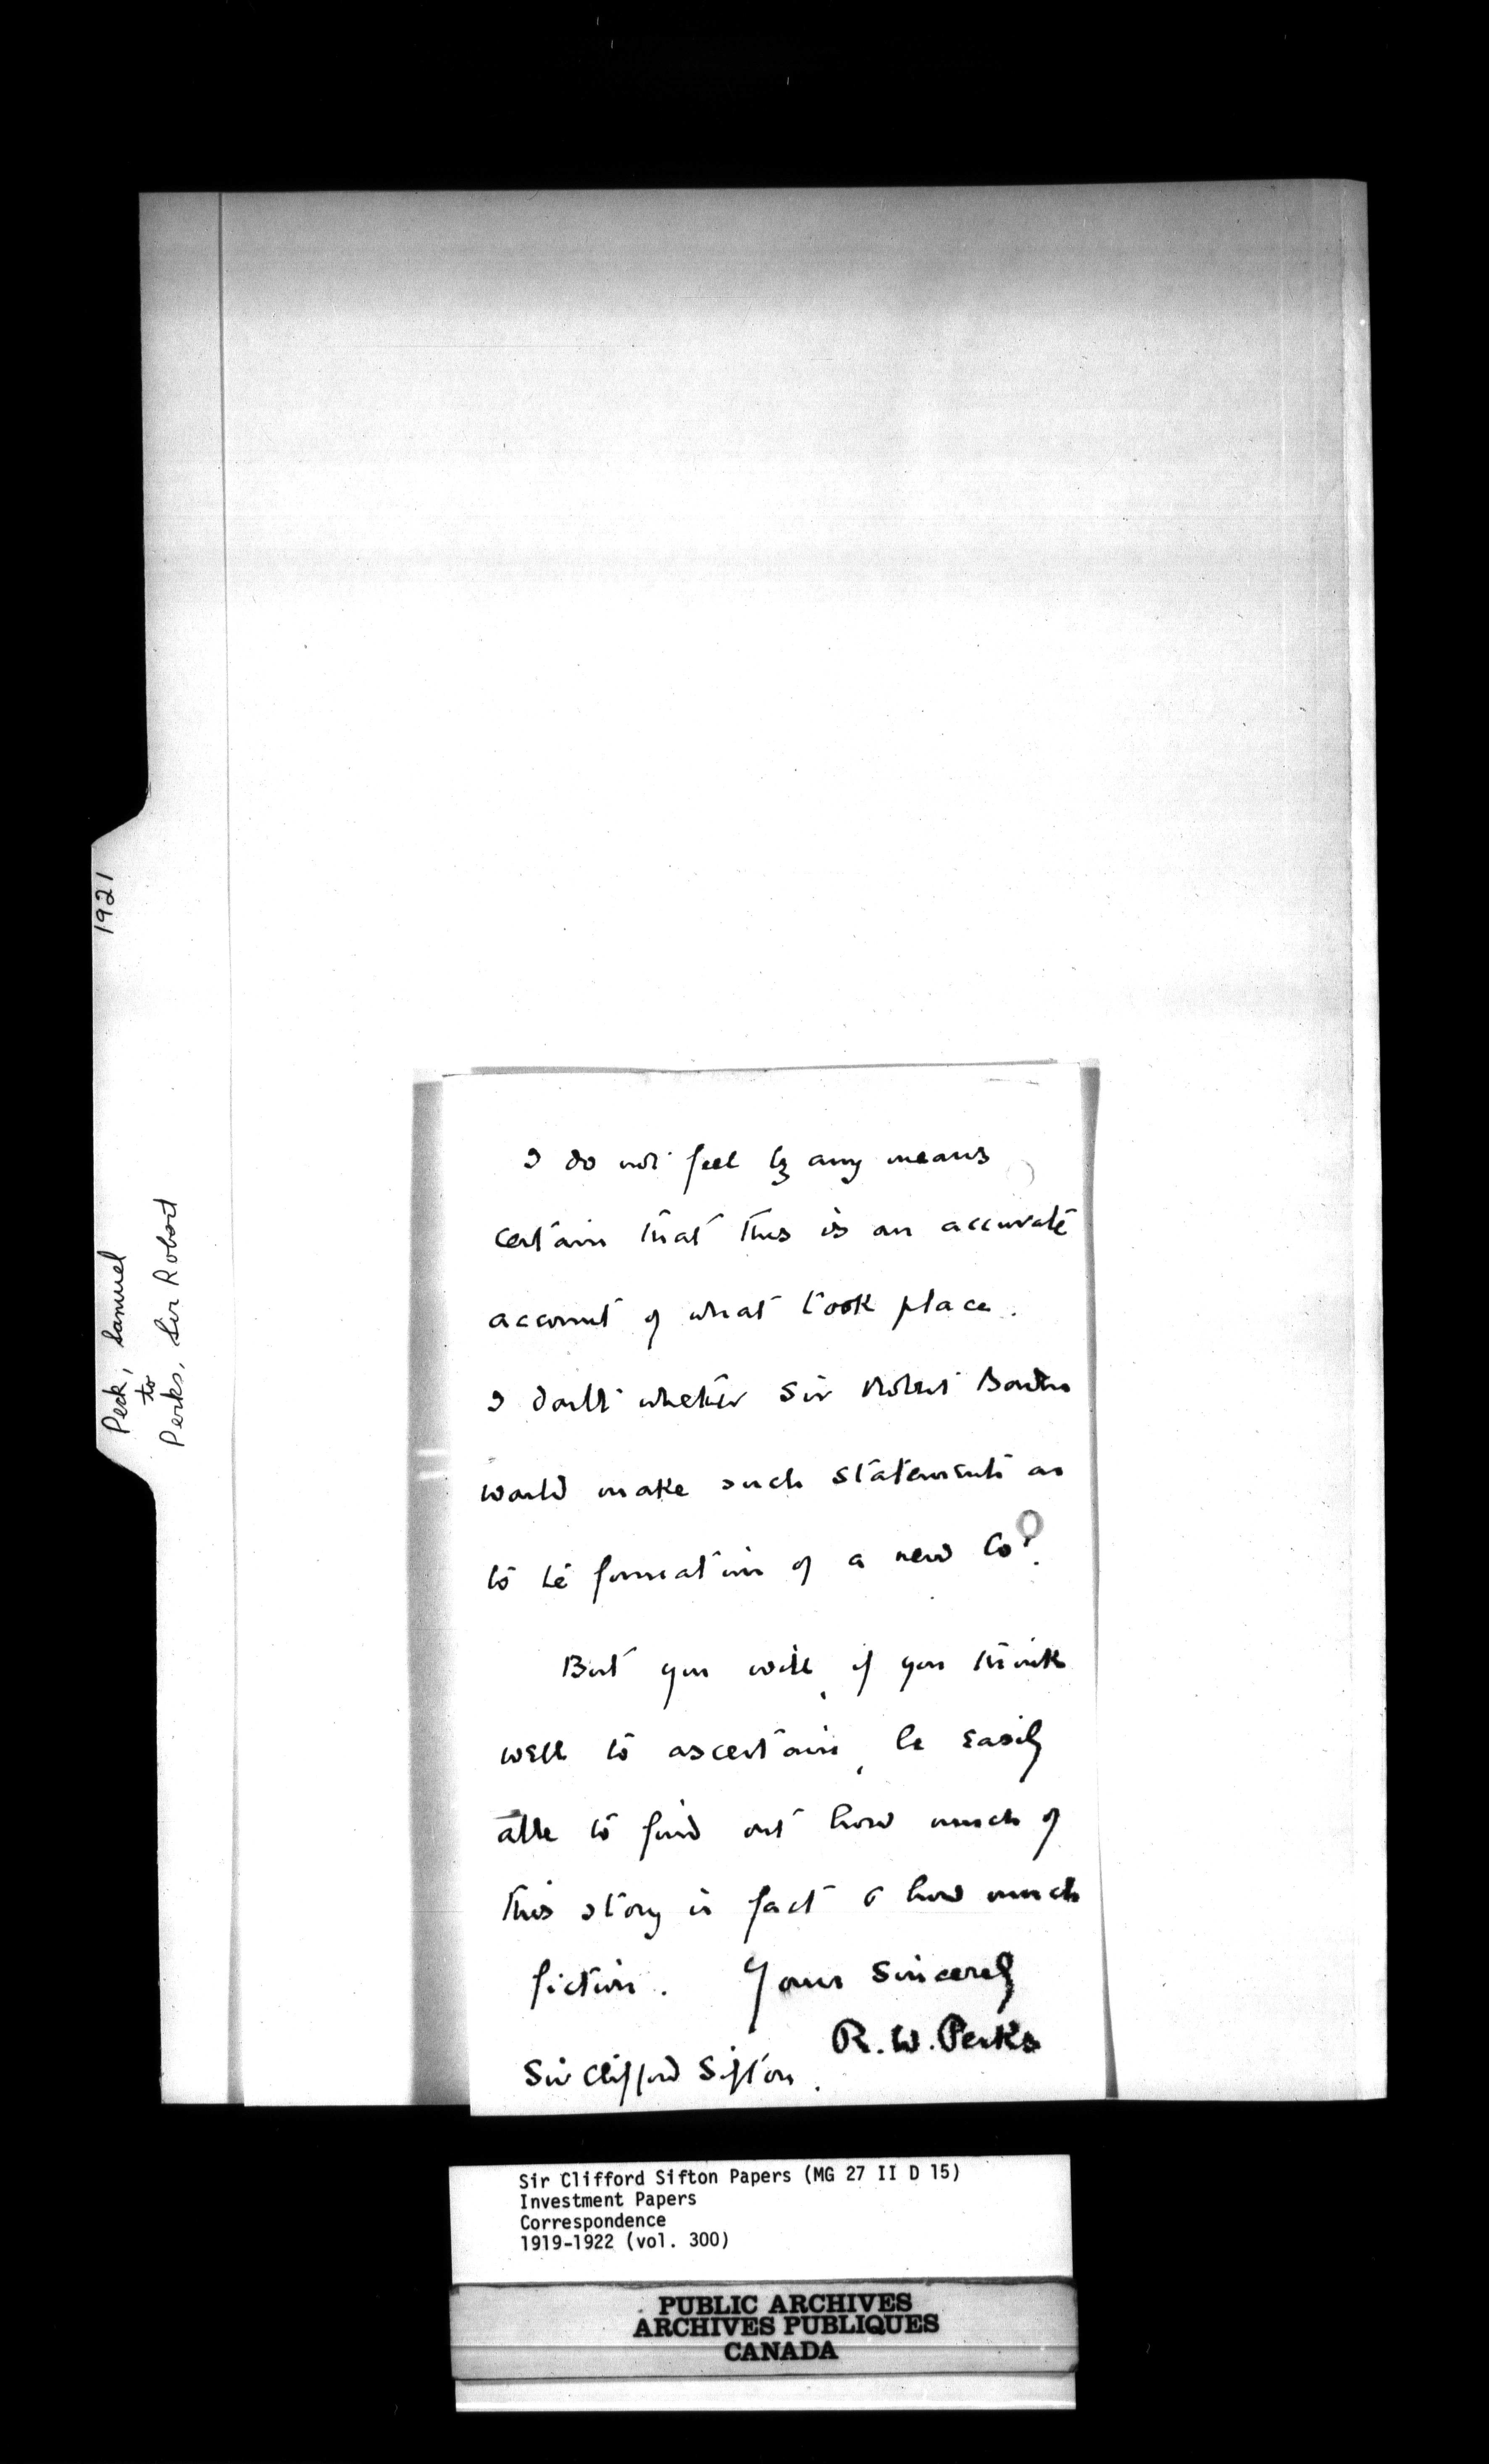 1921
Peck, Samuel
to
Perks, Sir Robert
I do not feel by any means
certain that this is an accurate
account of what took place.
I doubt whether Sir Robert Borden
would make such statements as
to the formation of a new Co?
But you will, if you think
well to ascertain, be easily
able to find out how much of
this story is fact & how much
fiction. Yours Sincerely
R. W. Perks
Sir Clifford Sifton.
Sir Clifford Sifton Papers (MG 27 II D 15)
Investment Papers
Correspondence
1919-1922 (vol. 300)
PUBLIC ARCHIVES
ARCHIVES PUBLIQUES
CANADA